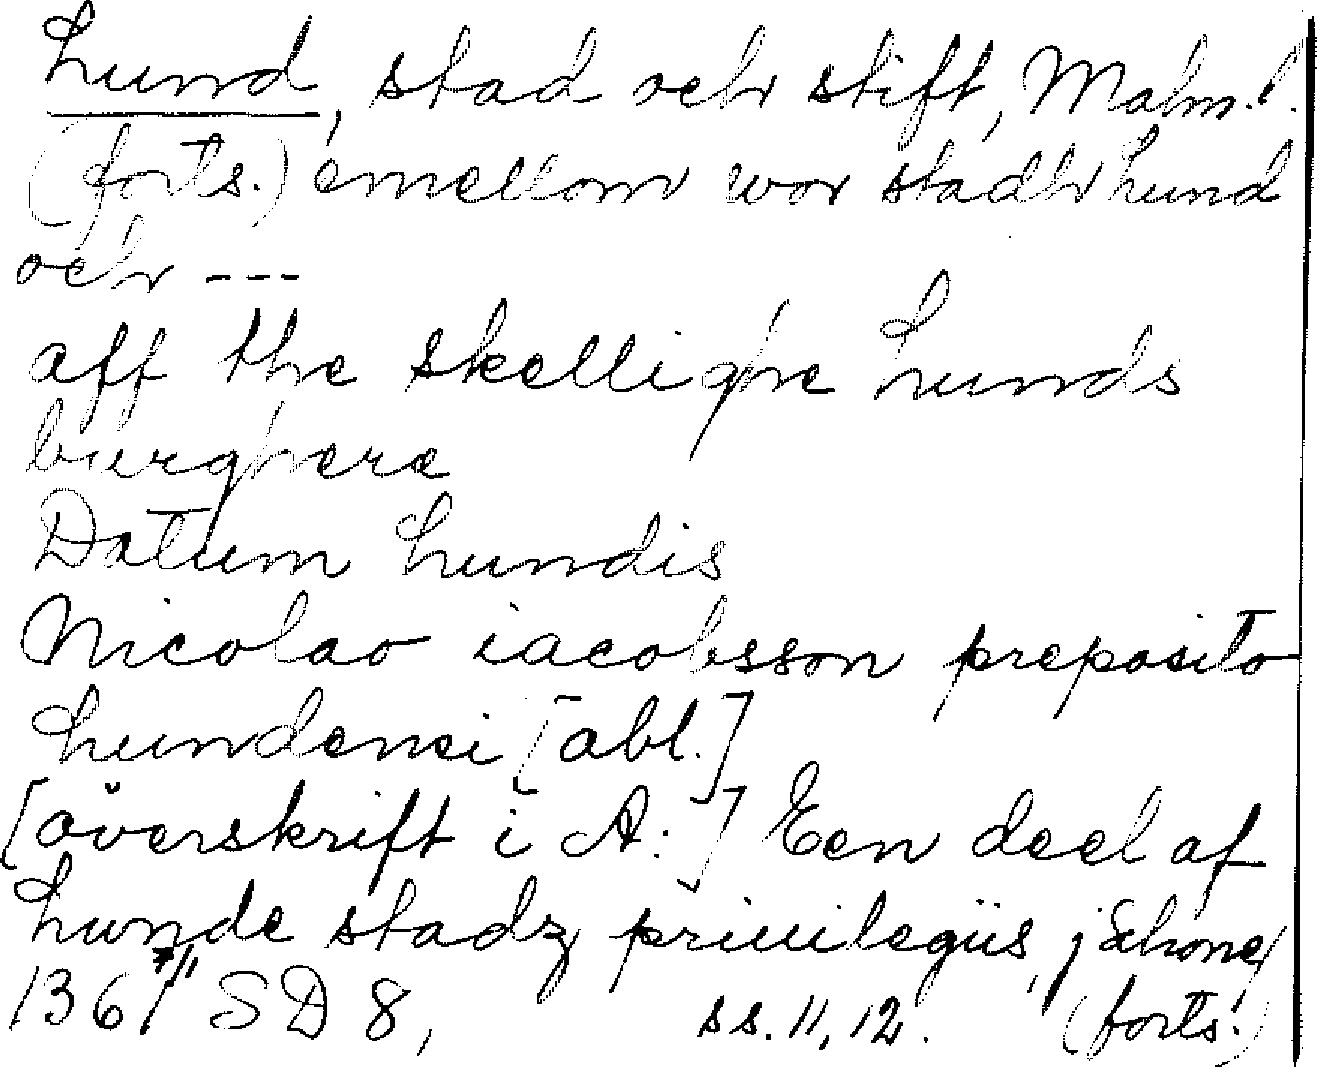 Lund, stad och stift, Malm. l.
(forts.) emellom wor stadh Lund
och ---
aff the skellighe Lunds
burghere
Datum Lundis
Nicolao iacobsson preposito
Lundensi [abl.]
[överskrift i A:] Een deel af
Lunde stadz priuilegiis, j Skone/
1367 7/11 SD 8, ss. 11, 12. (forts.)